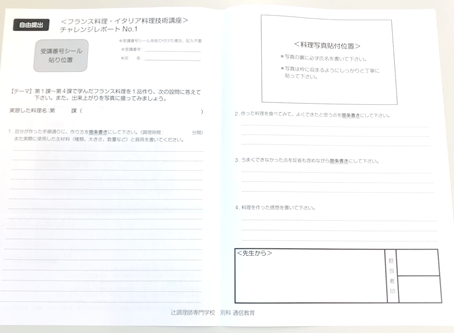 自由提出
<フランス料理・イタリア料理技術講座>
チャレンジレポート No.1
受講番号シール
貼り位置
【テーマ】第1課~第4課で学んだフランス料理を1品作り、次の設問に答えて
下さい。また、出来上がりを写真に撮ってみましょう。
実習した料理名:第 課( )
1. 自分が作った手順通りに、作り方を箇条書きにして下さい。(調理時間 分間)
また実際に使用した主材料(種類、大きさ、数量など)と器具を書いてください。
<料理写真貼付位置>
*写真の裏に必ず氏名を書いて下さい。
*写真は枠に収まるようにしっかりと丁寧に
貼って下さい。
2. 作った料理を食べてみて、よくできたと思う点を箇条書きにして下さい。
3. うまくできなかった点を反省も含めながら箇条書きにして下さい。
4. 料理を作った感想を書いて下さい。
<先生から>
担当者印
辻調理師専門学校 別科 通信教育